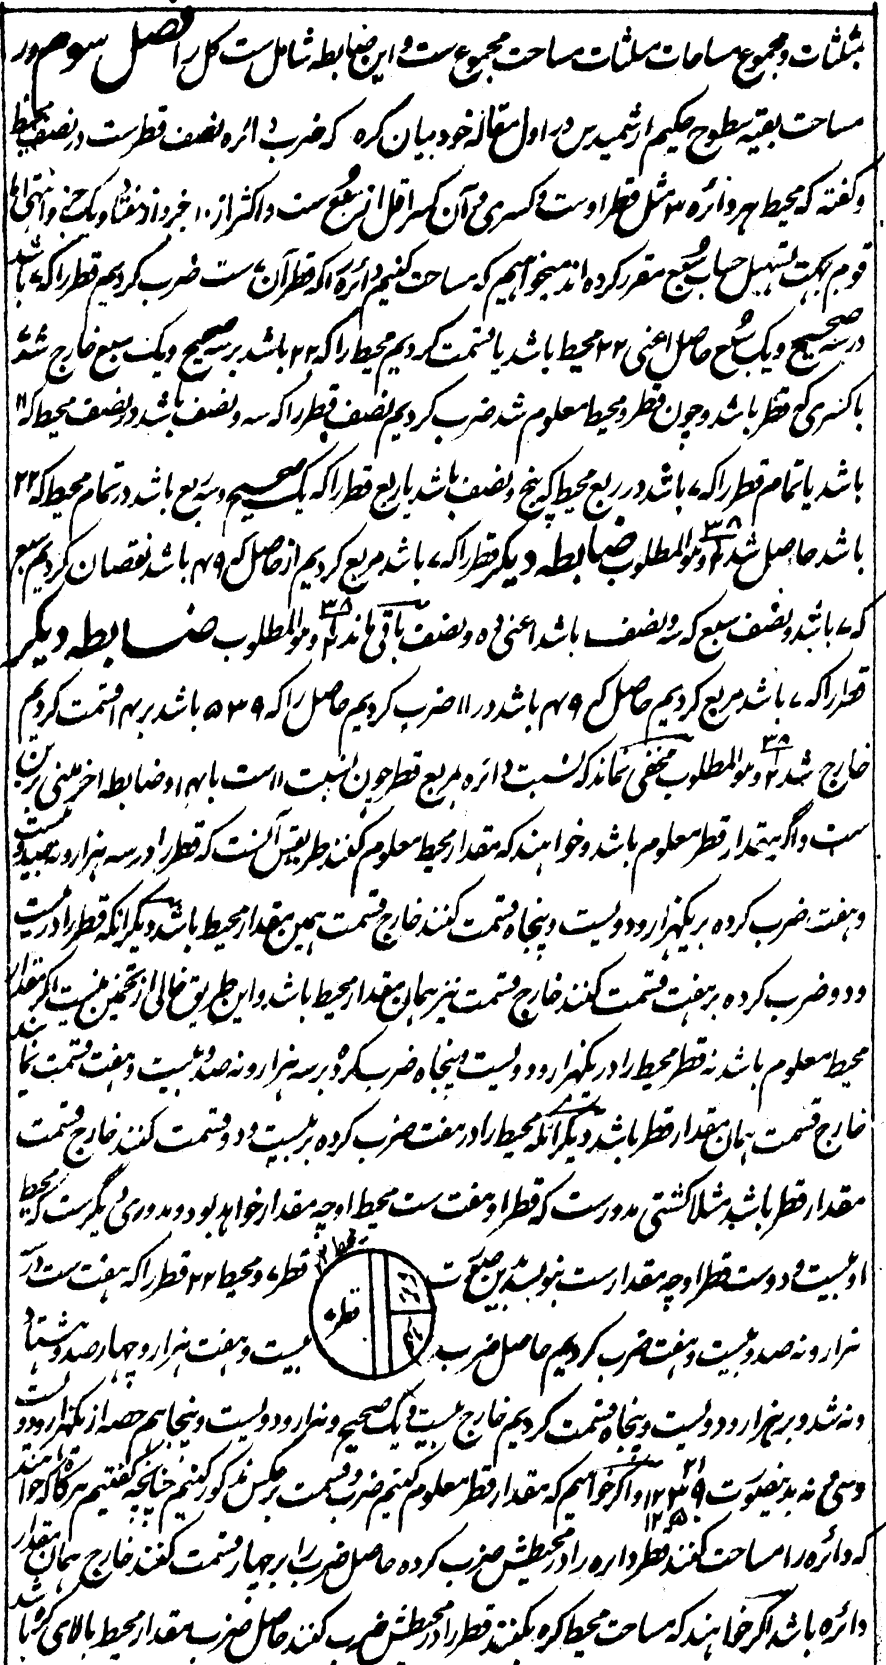 بمثلثات و مجموع مساحات مثلثات مساحت مجموع ست و این ضابطه شامل ست کل را فصل سوم در
مساحت بقیه سطوح حکیم ارشمیدس در اول مقاله خود بیان کرده که ضرب دائره نصف قطرست در نصف محیط
و گفته که محیط هر دائره ۳ مثل قطر اوست و کسری و آن کسر اقل از سبع ست و اکثر از ۱۰ جزو از هفتاد و یک جزو
قوم بجهت تسهیل حساب سبع مقرر کرده اند میخواهیم که مساحت کنیم دائره را که قطر آن ۷ ست ضرب کردیم قطر را که ۷ باشد
در سه صحیح و یک سبع حاصل اعنی ۲۲ محیط باشد یا قسمت کردیم محیط را که ۲۲ باشد بر سه صحیح و یک سبع خارج شد ۷
باکسری که قطر باشد و چون قطر و محیط معلوم شد ضرب کردیم نصف قطر را که سه و نصف باشد در نصف محیط که ۱۱
باشد یا تمام قطر را که ۷ باشد در ربع محیط که پنج و نصف باشد یا ربع قطر را که یک صحیح و سه ربع باشد در تمام محیط که ۲۲
باشد حاصل شد ۳۸ ۲ و هو المطلوب ضابطه دیگر قطر را که ۷ باشد مربع کردیم از حاصل که ۴۹ باشد نقصان کردیم سبع
که ۷ باشد و نصف سبع که سه و نصف باشد اعنی ده و نصف باقی ماند ۳۸ ۲ و هو المطلوب ضابطه دیگر
قطر را که ۷ باشد مربع کردیم حاصل که ۴۹ باشد در ۱۱ ضرب کردیم حاصل را که ۵۳۹ باشد بر ۱۴ قسمت کردیم
خارج شد ۳۸ ۲ و هو المطلوب مخفی نماند که نسبت دائره بمربع قطر چون نسبت ۱۱ ست با ۱۴ و ضابطه اخر مبنی برین
ست و اگر مقدار قطر معلوم باشد و خواهند که مقدار محیط معلوم کنند طریقش آنست که قطر را در سه هزار و نه صد و بیست
و هفت ضرب کرده بر یکهزار و دولیست و پنجاه قسمت کنند خارج قسمت همین مقدار محیط باشد دیگر آنکه قطر را در بیست
و دو ضرب کرده بر هفت قسمت کنند خارج قسمت نیز همان مقدار محیط باشد و این طریق خالی از تخمین نیست اگر مقدار
محیط معلوم باشد نه قطر محیط را در یکهزار و دولیست و پنجاه ضرب کرده بر سه هزار و نه صد و بیست و هفت قسمت نمایند
خارج قسمت همان مقدار قطر باشد دیگر آنکه محیط را در هفت ضرب کرده بر بیست و دو قسمت کنند خارج قسمت
مقدار قطر باشد مثلا کشتی مدورست که قطر او هفت ست محیط او چه مقدار خواهد بود و مدوری دیگرست که محیط
او بیست و دوست قطر او چه مقدارست بنویسد بدین صورت قطر ۷ و محیط ۲۲ قطر را که هفت ست در سه
هزار و نه صد و بیست و هفت ضرب کردیم حاصل ضرب بیست و هفت هزار و چهار صد و هشتاد
قطر ۷
و نه شد و بر یکهزار و دولیست و پنجاه قسمت کردیم خارج بیست و یک صحیح و هزار و دولیست و پنجاهم حصه از یکهزار و دولیست
و سی و نه بدینصورت ۲۱ ۱۲۳۹ ۱۲۵۰ و اگر خواهیم که مقدار قطر معلوم کنیم ضرب و قسمت بر عکس مذکور کنیم چنانچه گفتیم هرگاه که خواهند
که دائره را مساحت کنند قطر دایره را در محیطش ضرب کرده حاصل ضرب را بر چهار قسمت کنند خارج همان مقدار
دائره باشد اگر خواهند که مساحت محیط کره بکنند قطر را در محیطش ضرب کنند حاصل ضرب مقدار محیط بالای کره باشد